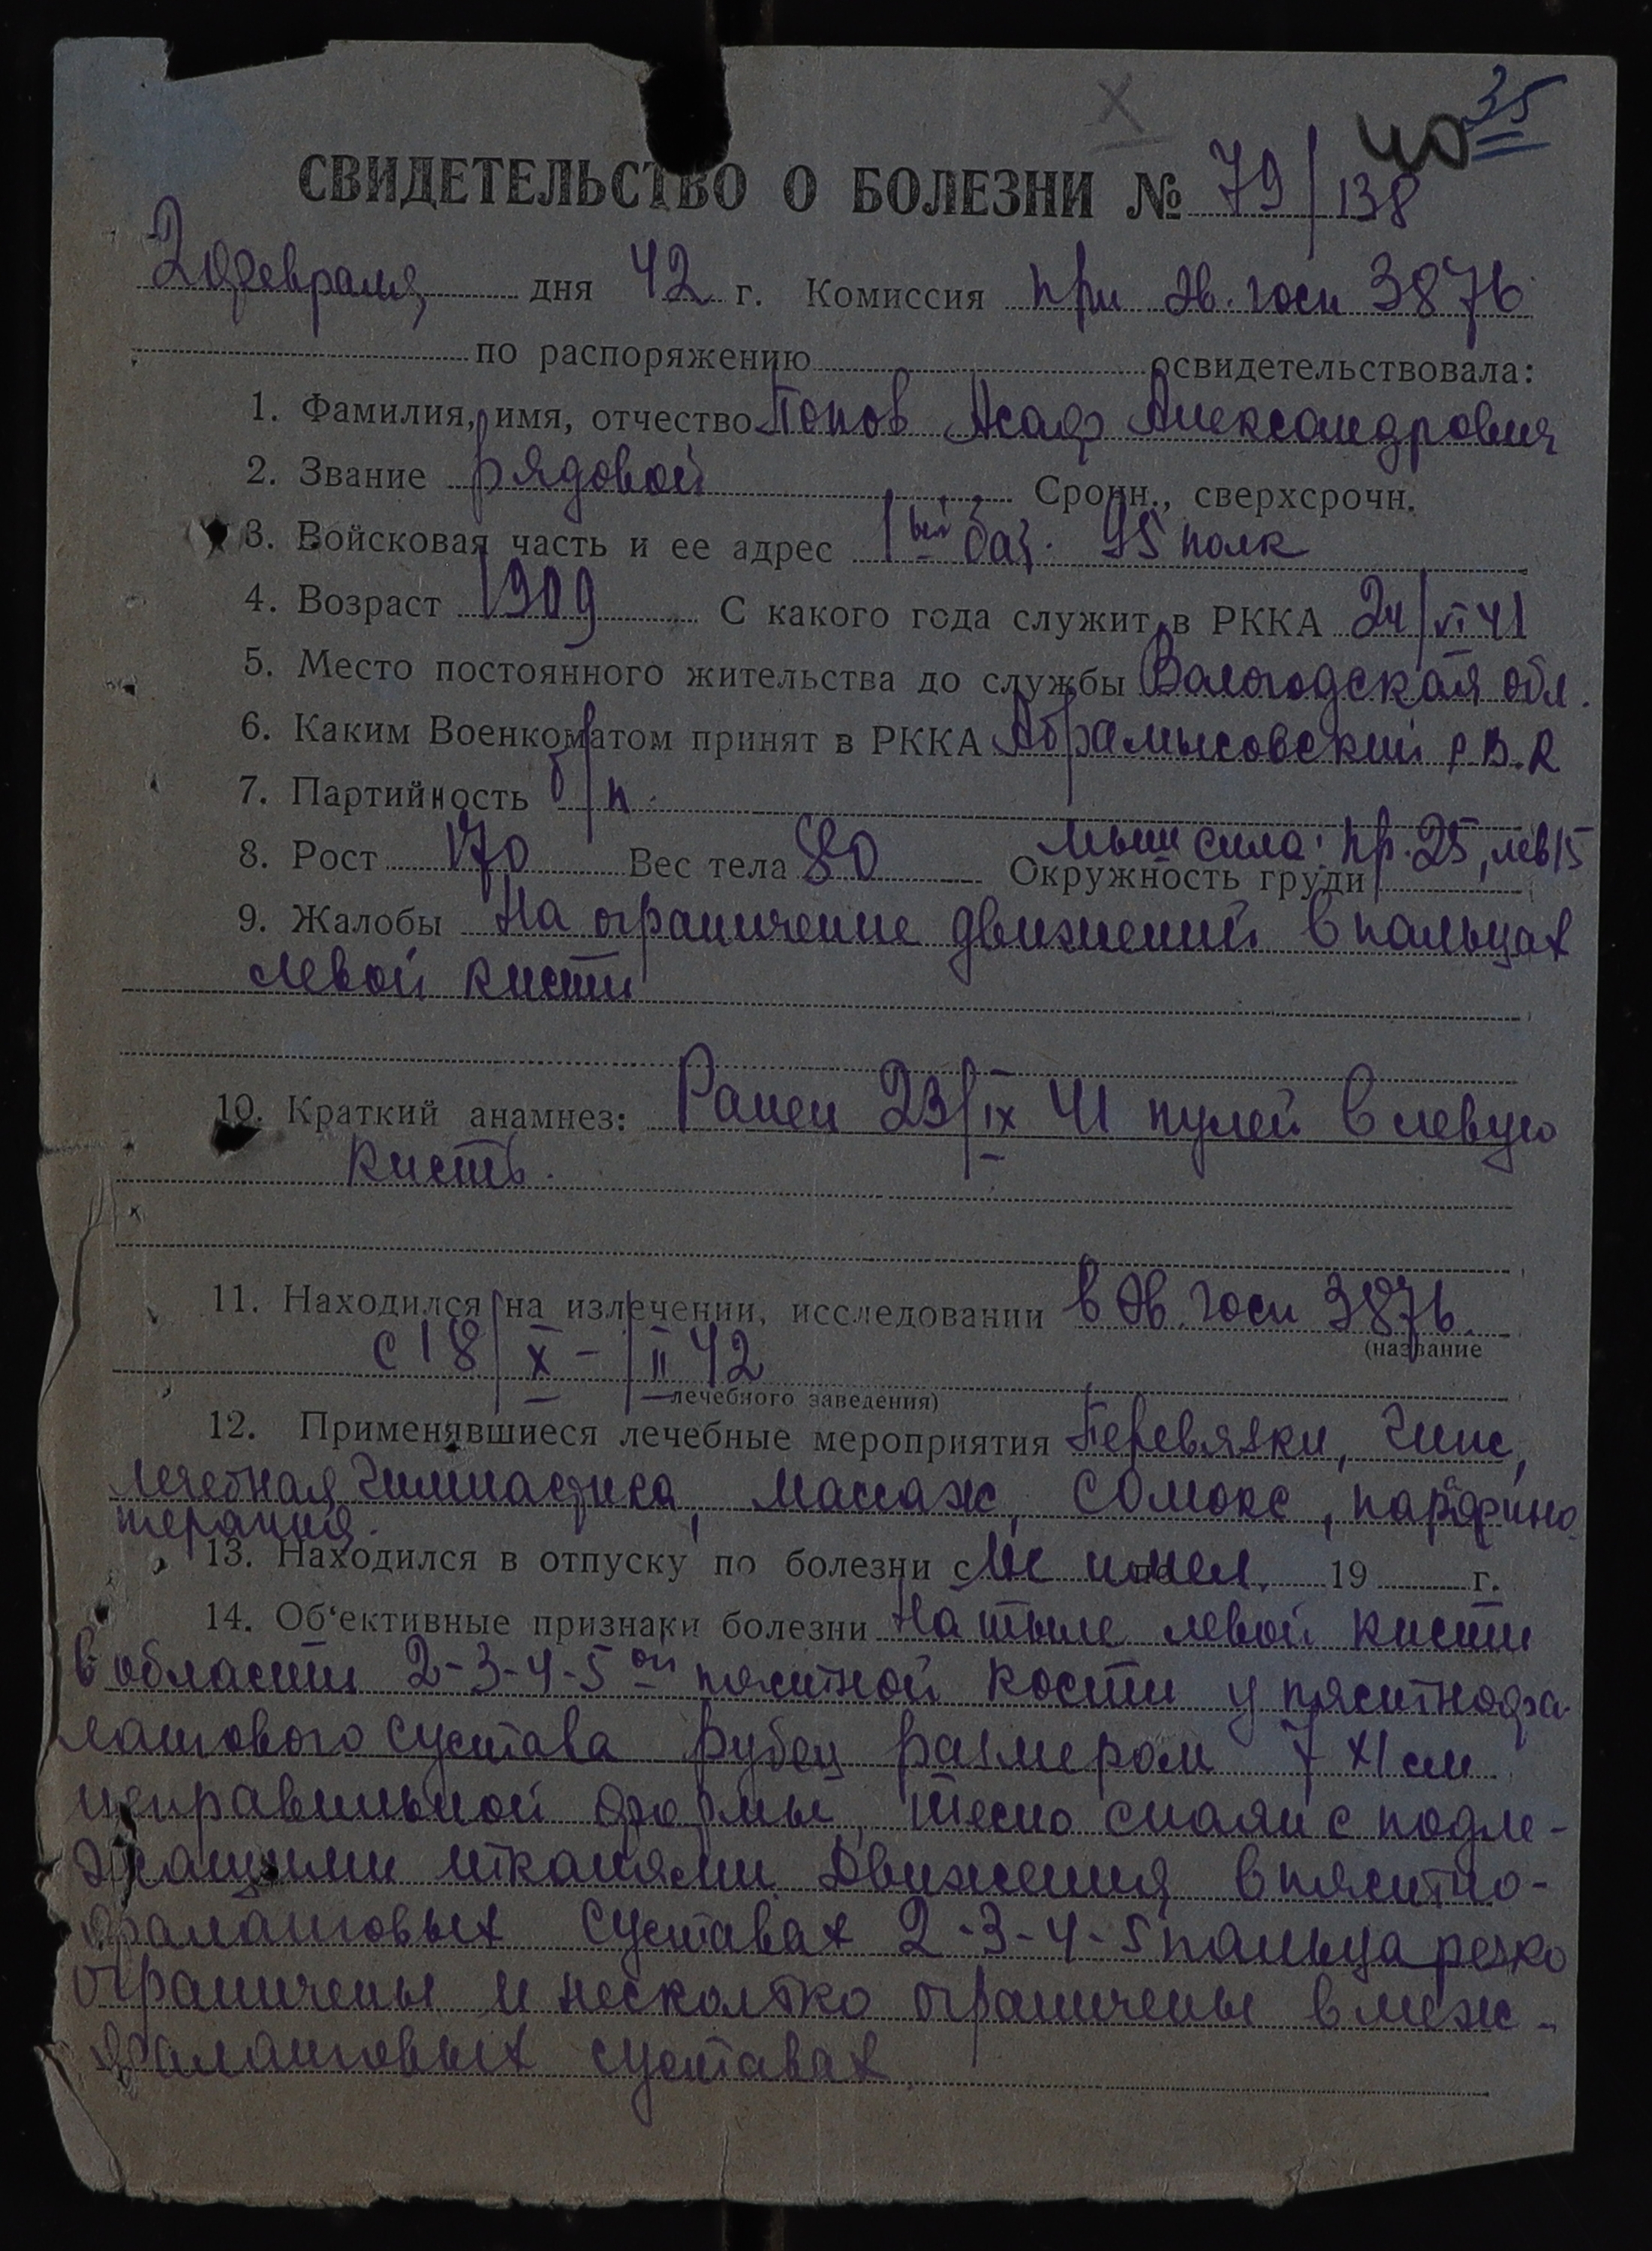 35
40
Х
СВИДЕТЕЛЬСТВО О БОЛЕЗНИ № 79/138
2 февраля дня 42 г. Комиссия при эв. госп 3876
по распоряжению освидетельствовала:
1. Фамилия, имя, отчество Попов Асаф Александрович
2. Звание рядовой Срочн., сверхсрочн.
3. Войсковая часть и ее адрес 1 вый бат. 95 полк
4. Возраст 1909 С какого года служит в РККА 24/VI 41
5. Место постоянного жительства до службы Вологодская обл.
6. Каким Военкоматом принят в РККА р.В.К
7. Партийность б/п.
8. Рост 170 Вес тела 80 Окружность груди мыш сила: пр. 25, лев 15
9. Жалобы На ограничение движений в пальцах
левой кисти
10. Краткий анамнез: Ранен 23/IX 41 пулей в левую
кисть.
11. Находился на излечении, исследовании в эв. госп 3876.
(название
с 18/X - /II 42
лечебного заведения)
12. Применявшиеся лечебные мероприятия Перевязки, гипс,
лечебная гимнастика, массаж, солюкс, парафино
терапия.
13. Находился в отпуску по болезни с не имел. 19 г.
14. Об'ективные признаки болезни На тыле левой кисти
в области 2-3-4-5 ой пястной кости у пястнофа-
лангового сустава рубец размером 7 х 1 см
неправильной формы, тесно спаян с подле-
жащими тканями. Движения в пястно-
фаланговых суставах 2-3-4-5 пальца резко
ограничены и несколько ограничены в меж-
фаланговых суставах.